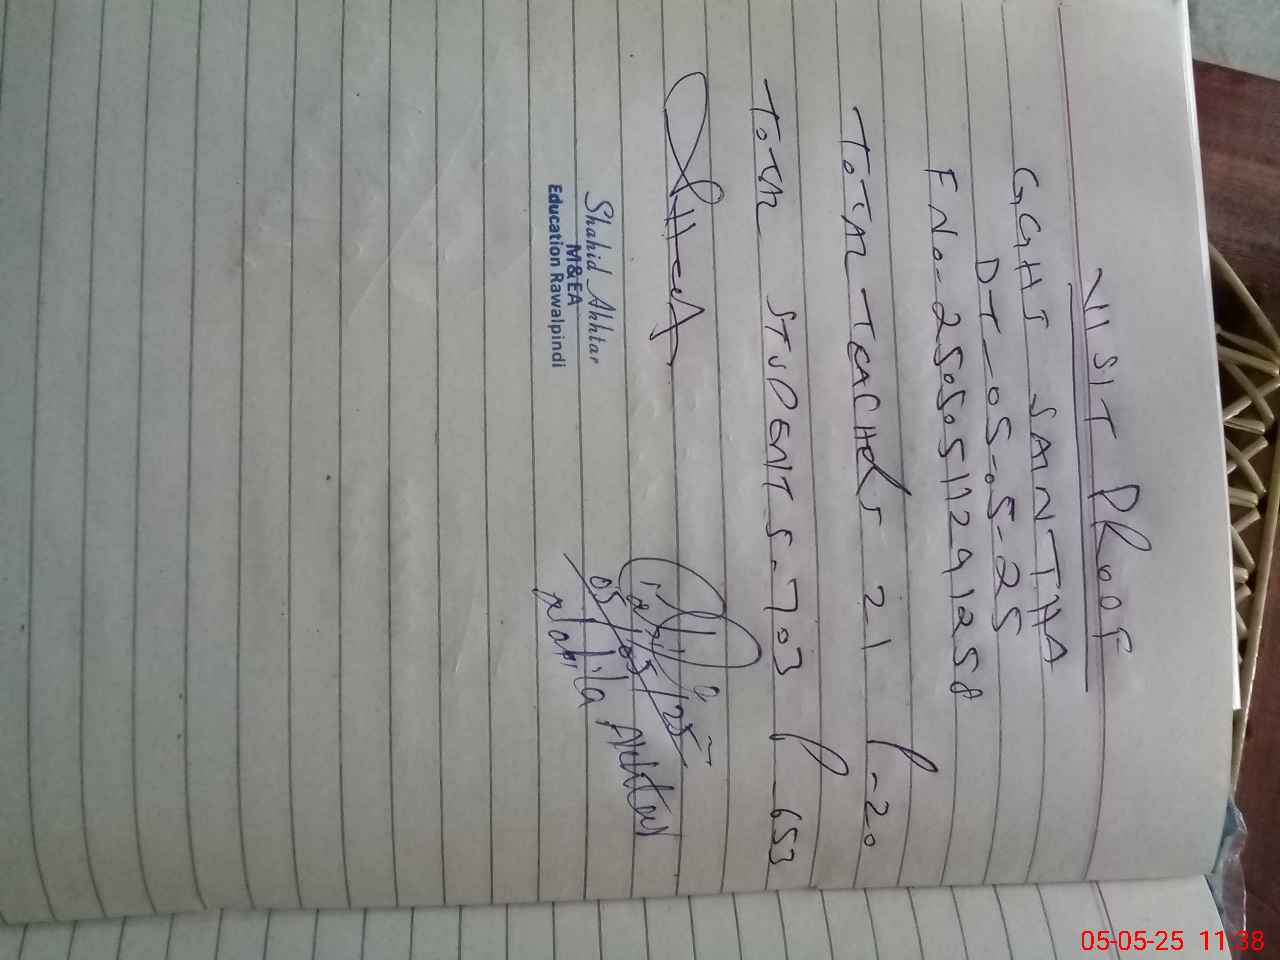 VISIT PROOF
GGHS SAINTHA
DT-05-05-25
F No-25050511291258
TOTAL TEACHERS 21 P-20
TOTAL STUDENTS-703 P-653
Shahid Akhtar
M&EA
Education Rawalpindi
05/05/25
Nabila Akhtar
05-05-25 11:38